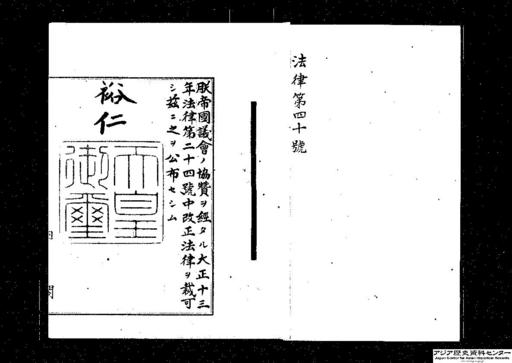 法律第四十號
朕帝國議會ノ協贊ヲ經タル大正十三
年法律第二十四號中改正法律ヲ裁可
シ茲ニ之ヲ公布セシム
裕仁
天皇
御璽
内
閣
アジア歴史資料センター
Japan Center for Asian Historical Records